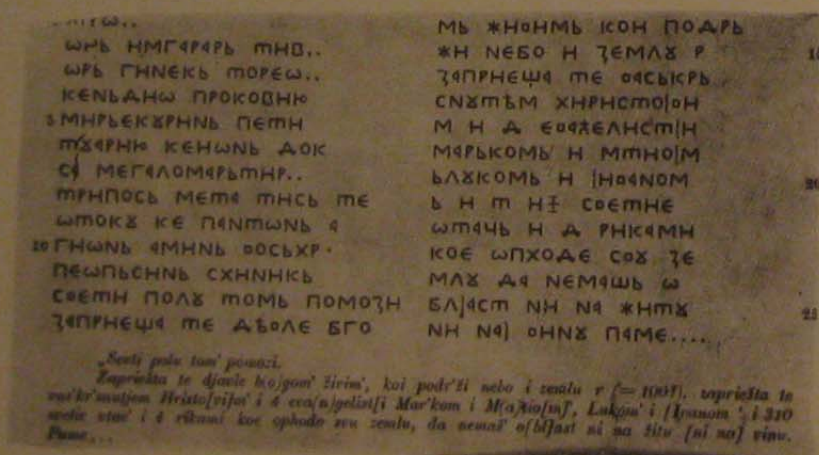 ѠНЬ НМГАРАРЬ ТНВ..
ѠРЬ ГНNЕКЬ ТОРЕѠ..
КЕNЬДНѠ ПРОКОВНЮ
5 МНРЬЕКꙊРНNЬ ПЕТН
ТꙊАРНЮ КЕНѠNЬ ДОК
СА МЕГАЛОМАРЬТНР..
ТРНПОСЬ МЕТА ТНСЬ ТЕ
ѠТОКꙊ КЕ ПАNТѠNЬ А
10 ГНѠNЬ АМНNЬ ВОСЬХР.
ПЕѠПЬСНNЬ СХНNНКЬ
СВЕТН ПОЛꙊ ТОМЬ ПОМОЗН
ЗАПРНЕЩА ТЕ ДѢВЛЕ БГО
МЬ ЖНВНМЬ КОН ПОДРЬ
ЖН NЕБО Н ЗЕМЛꙊ Р 15
ЗАПРНЕЩА ТЕ ВАСЬКРЬ
СNꙊТѢМ ХНРНСТО[ВН
М Н Д ЕВАЖЕЛНСТ[Н
МАРЬКОМЬ Н МТНО[М
ЬЛꙊКОМЬ Н [НВАNОМ 20
Ь Н Т НІ СВЕТНЕ
ѠТАЧЬ Н Д РНКАМН
КОЕ ѠПХОДЕ СВꙊ ЗЕ
МЛꙊ ДА NЕМАШЬ Ѡ
БЛ]АСТ NН NА ЖНТꙊ 25
NН NА] ВНNꙊ ПАМЕ....
„Sveti polu tom' pomozi.
Zapriešta te djavle b(o)gom' živim', koi podr'ži nebo i zemlu r zapriešta te
vas'kr'snutjem Hristo[vi]m' i 4 eva(n)gelist[i Mar'kom i M(a)tio[m]', Lukom' i [I]vanom', i 310
svetie otac' i 4 rikami koe ophode svu zemlu, da nemaš' o[bl]ast ni na žitu [ni na] vinu.
Pame...